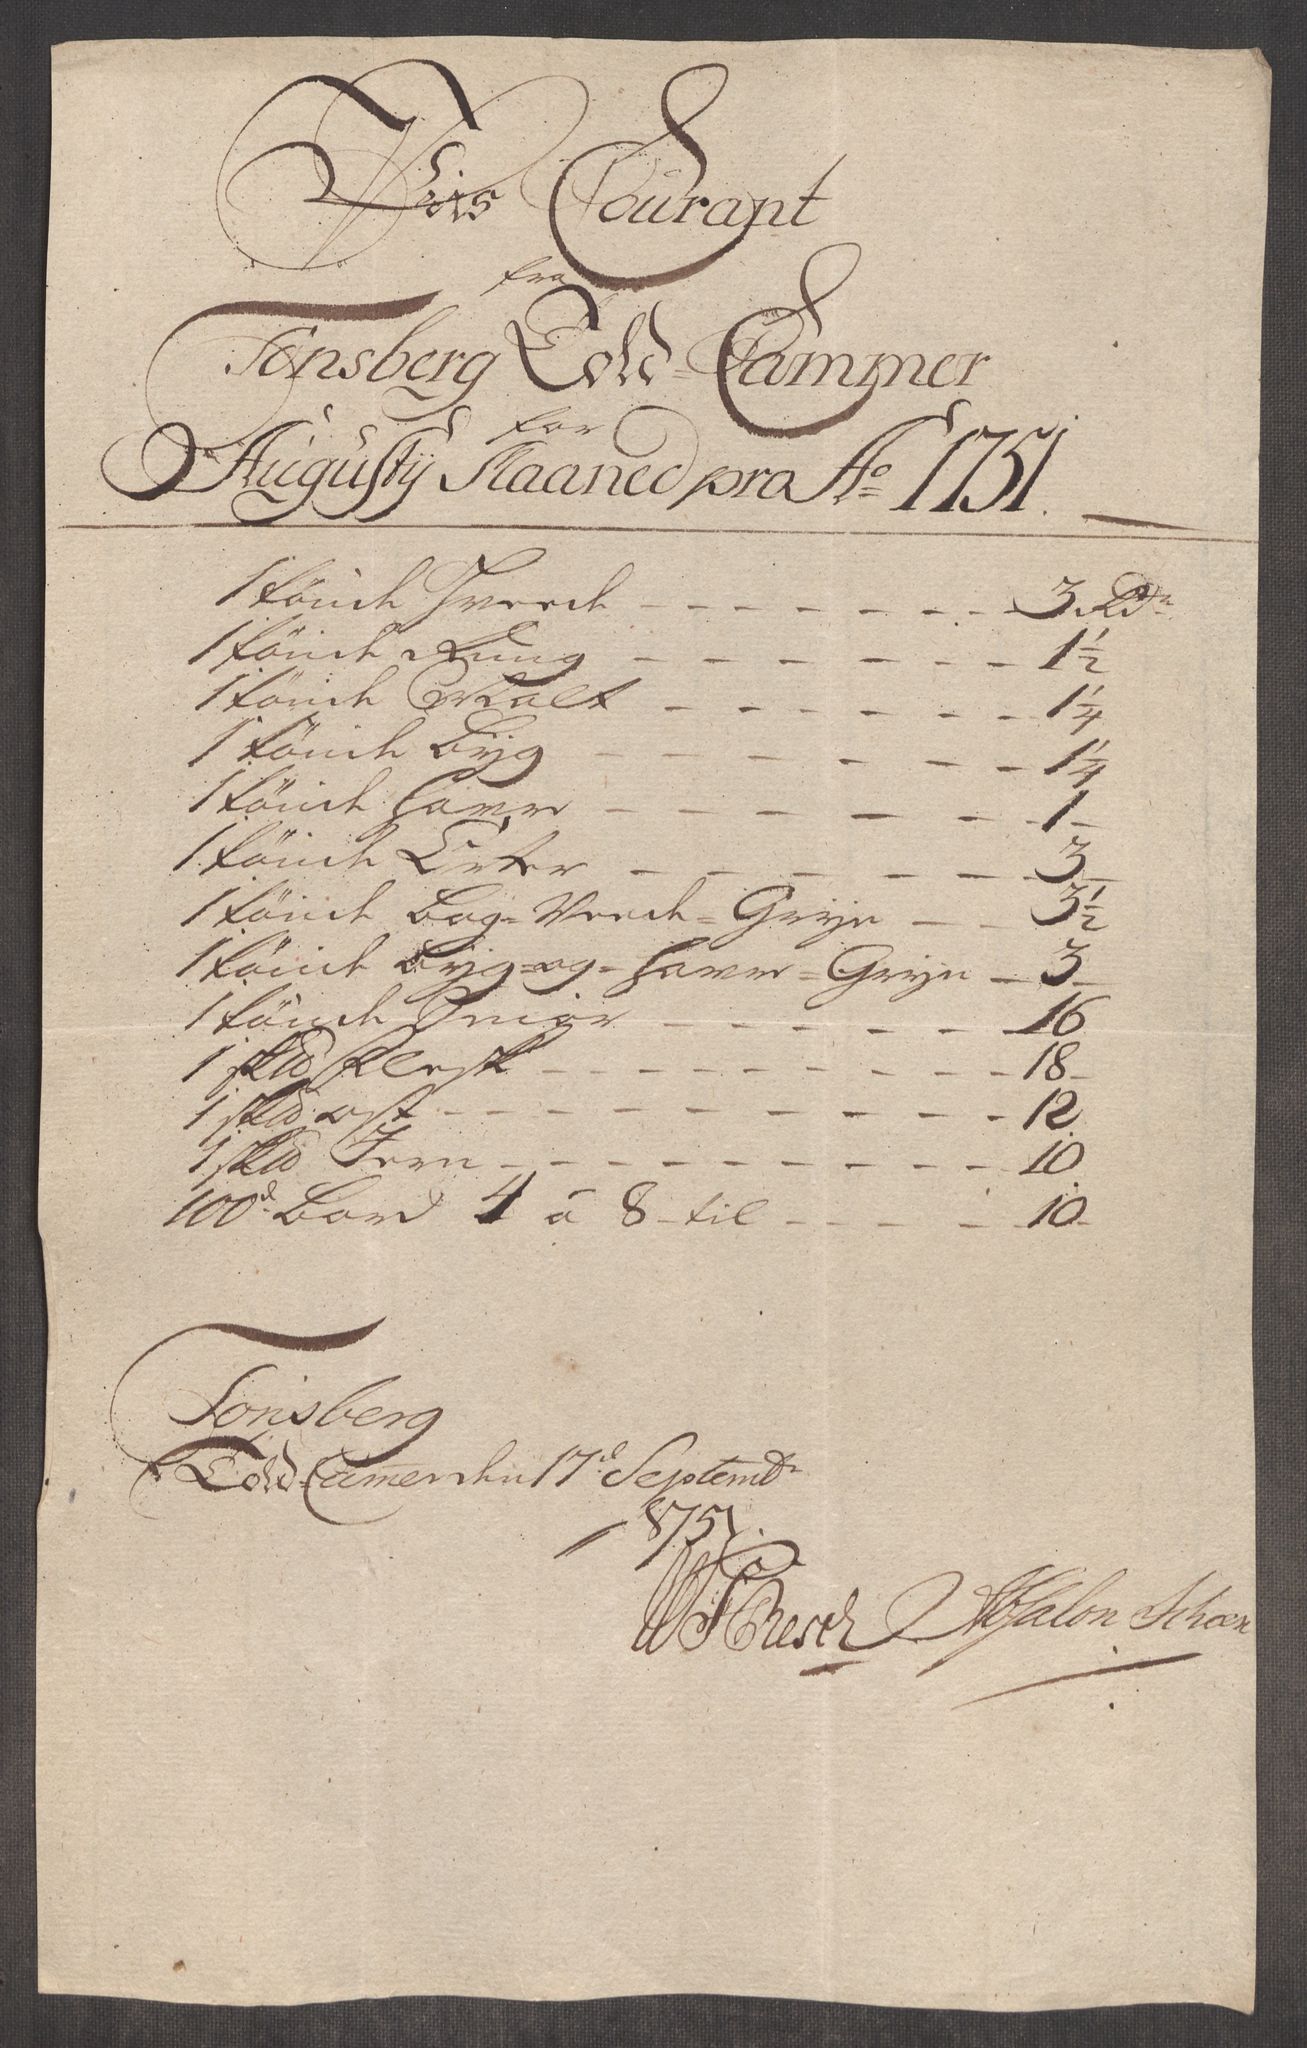 Priis Courant
fra
Tonsberg Told-Cammer
for
Augustÿ Maaned pro Ao 1751.
1 tönde Hveede - - - 3 Rdr
1 tönde Rüug - - - 1 1/2
1 tönde Malt - - - 1 1/4
1 tönde Büg - - - 1 1/4
1 tönde Havre - - - 1 -
1 tönde Erter - - - 3 -
1 tönde Bog-Veede-Grÿn - - 3 1/2
1 tönde Bÿg-og-Havre-Grÿn - 3 -
1 tönde Smör - - - 16
1 sk℔ Flesk - - - 18 -
1 sk℔ ost - - - 12
1 sk℔ Jern - - - 10
100d Bord 4 a 8 til - - - 10 -
Tonsberg
Told-Camer den 17d Septembr
1751.
Resch Absalon Schoen